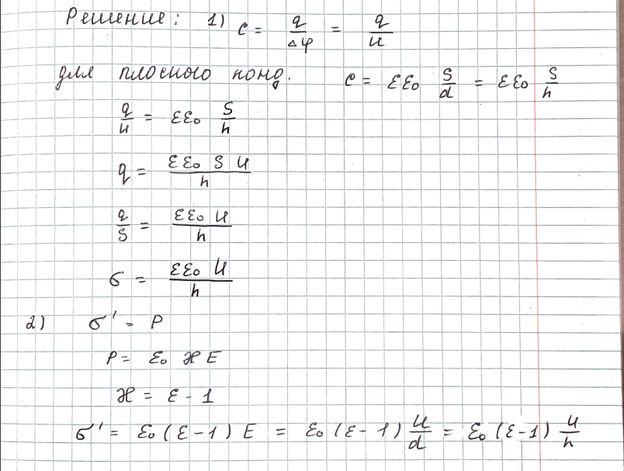 Решение: 1) C = q/Δφ = q/U
для плоского конд. C = εε₀ S/d = εε₀ S/h
q/U = εε₀ S/h
q = εε₀ S U/h
q/S = εε₀ U/h
σ = εε₀ U/h
2) σ' = P
P = ε₀ ϰ E
ϰ = ε - 1
σ' = ε₀ (ε - 1) E = ε₀ (ε - 1) U/d = ε₀ (ε - 1) U/h